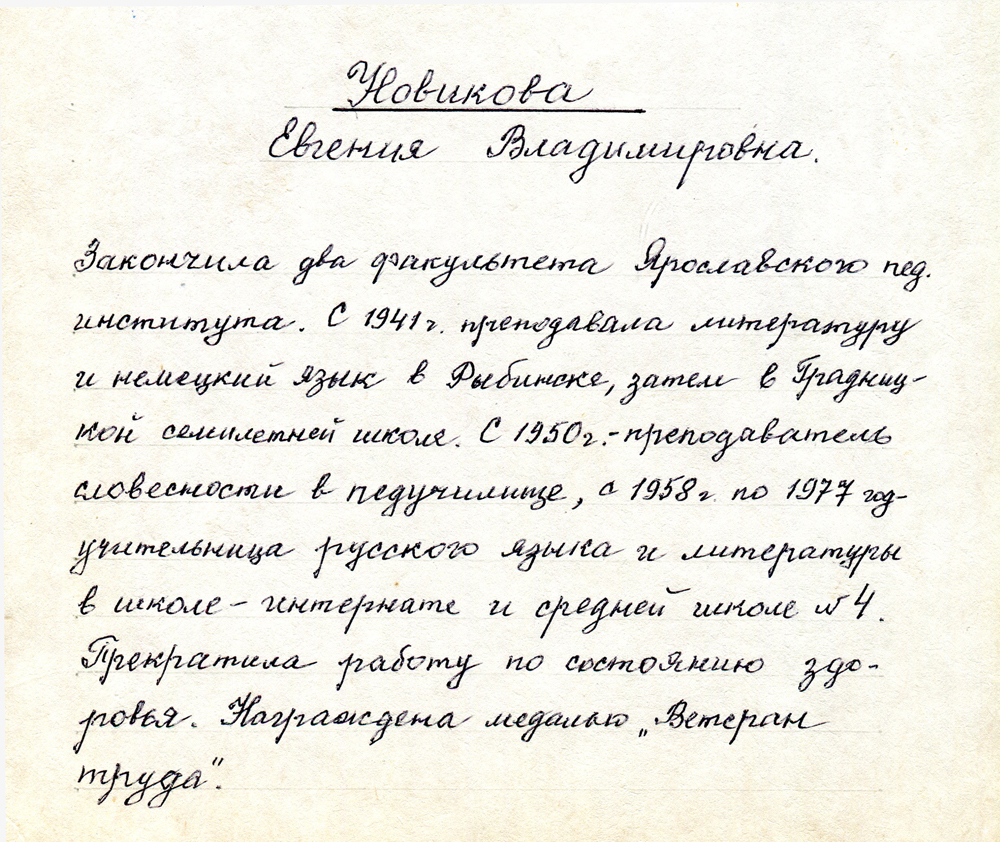 Новикова
Евгения Владимировна.
Закончила два факультета Ярославского пед.
института. С 1941 г. преподавала литературу
и немецкий язык в Рыбинске, затем в Градниц-
кой семилетней школе. С 1950 г. - преподаватель
словесности в педучилище, с 1958 г. по 1977 год-
учительница русского языка и литературы
в школе - интернате и средней школе №4.
Прекратила работу по состоянию здо-
ровья. Награждена медалью „Ветеран
труда".